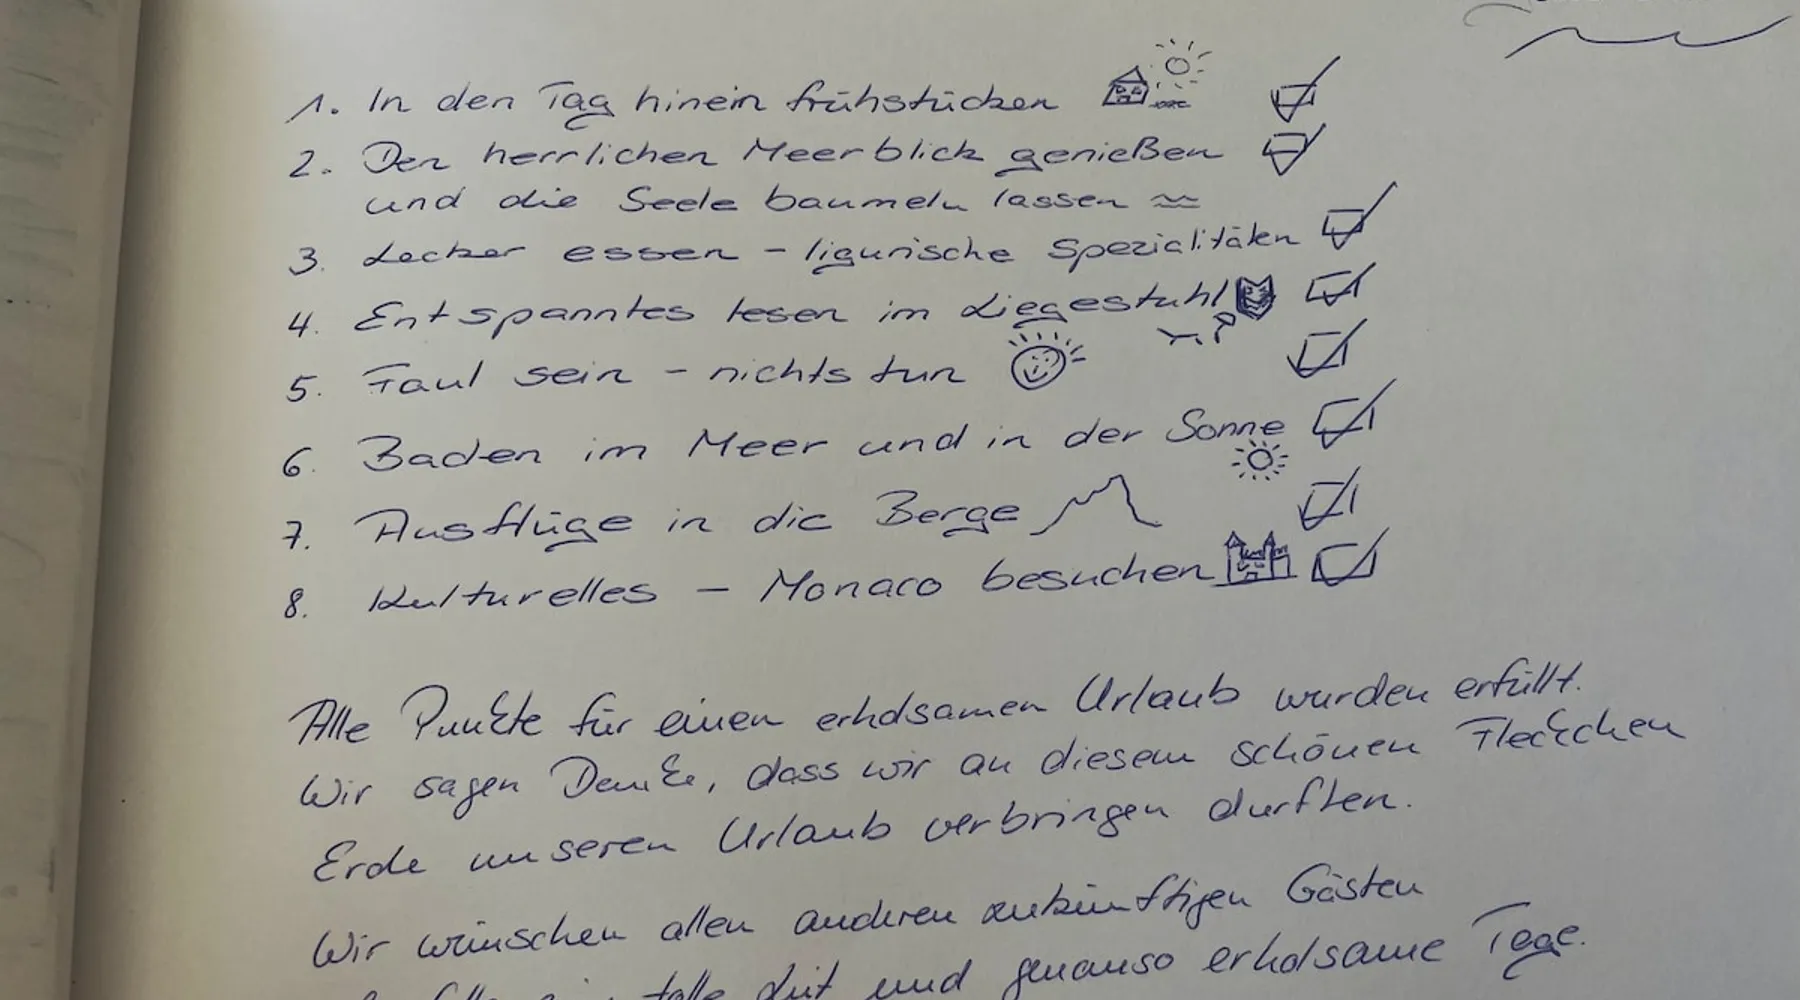 1. In den Tag hinein frühstücken
2. Den herrlichen Meerblick genießen
und die Seele baumeln lassen
3. Lecker essen - ligurische Spezialitäten
4. Entspanntes lesen im Liegestuhl
5. Faul sein - nichts tun
6. Baden im Meer und in der Sonne
7. Ausflüge in die Berge
8. Kulturelles - Monaco besuchen
Alle Punkte für einen erholsamen Urlaub wurden erfüllt.
Wir sagen Danke, dass wir an diesem schönen Fleckchen
Erde unseren Urlaub verbringen durften.
Wir wünschen allen anderen zukünftigen Gästen
tolle Zeit und genauso erholsame Tage.